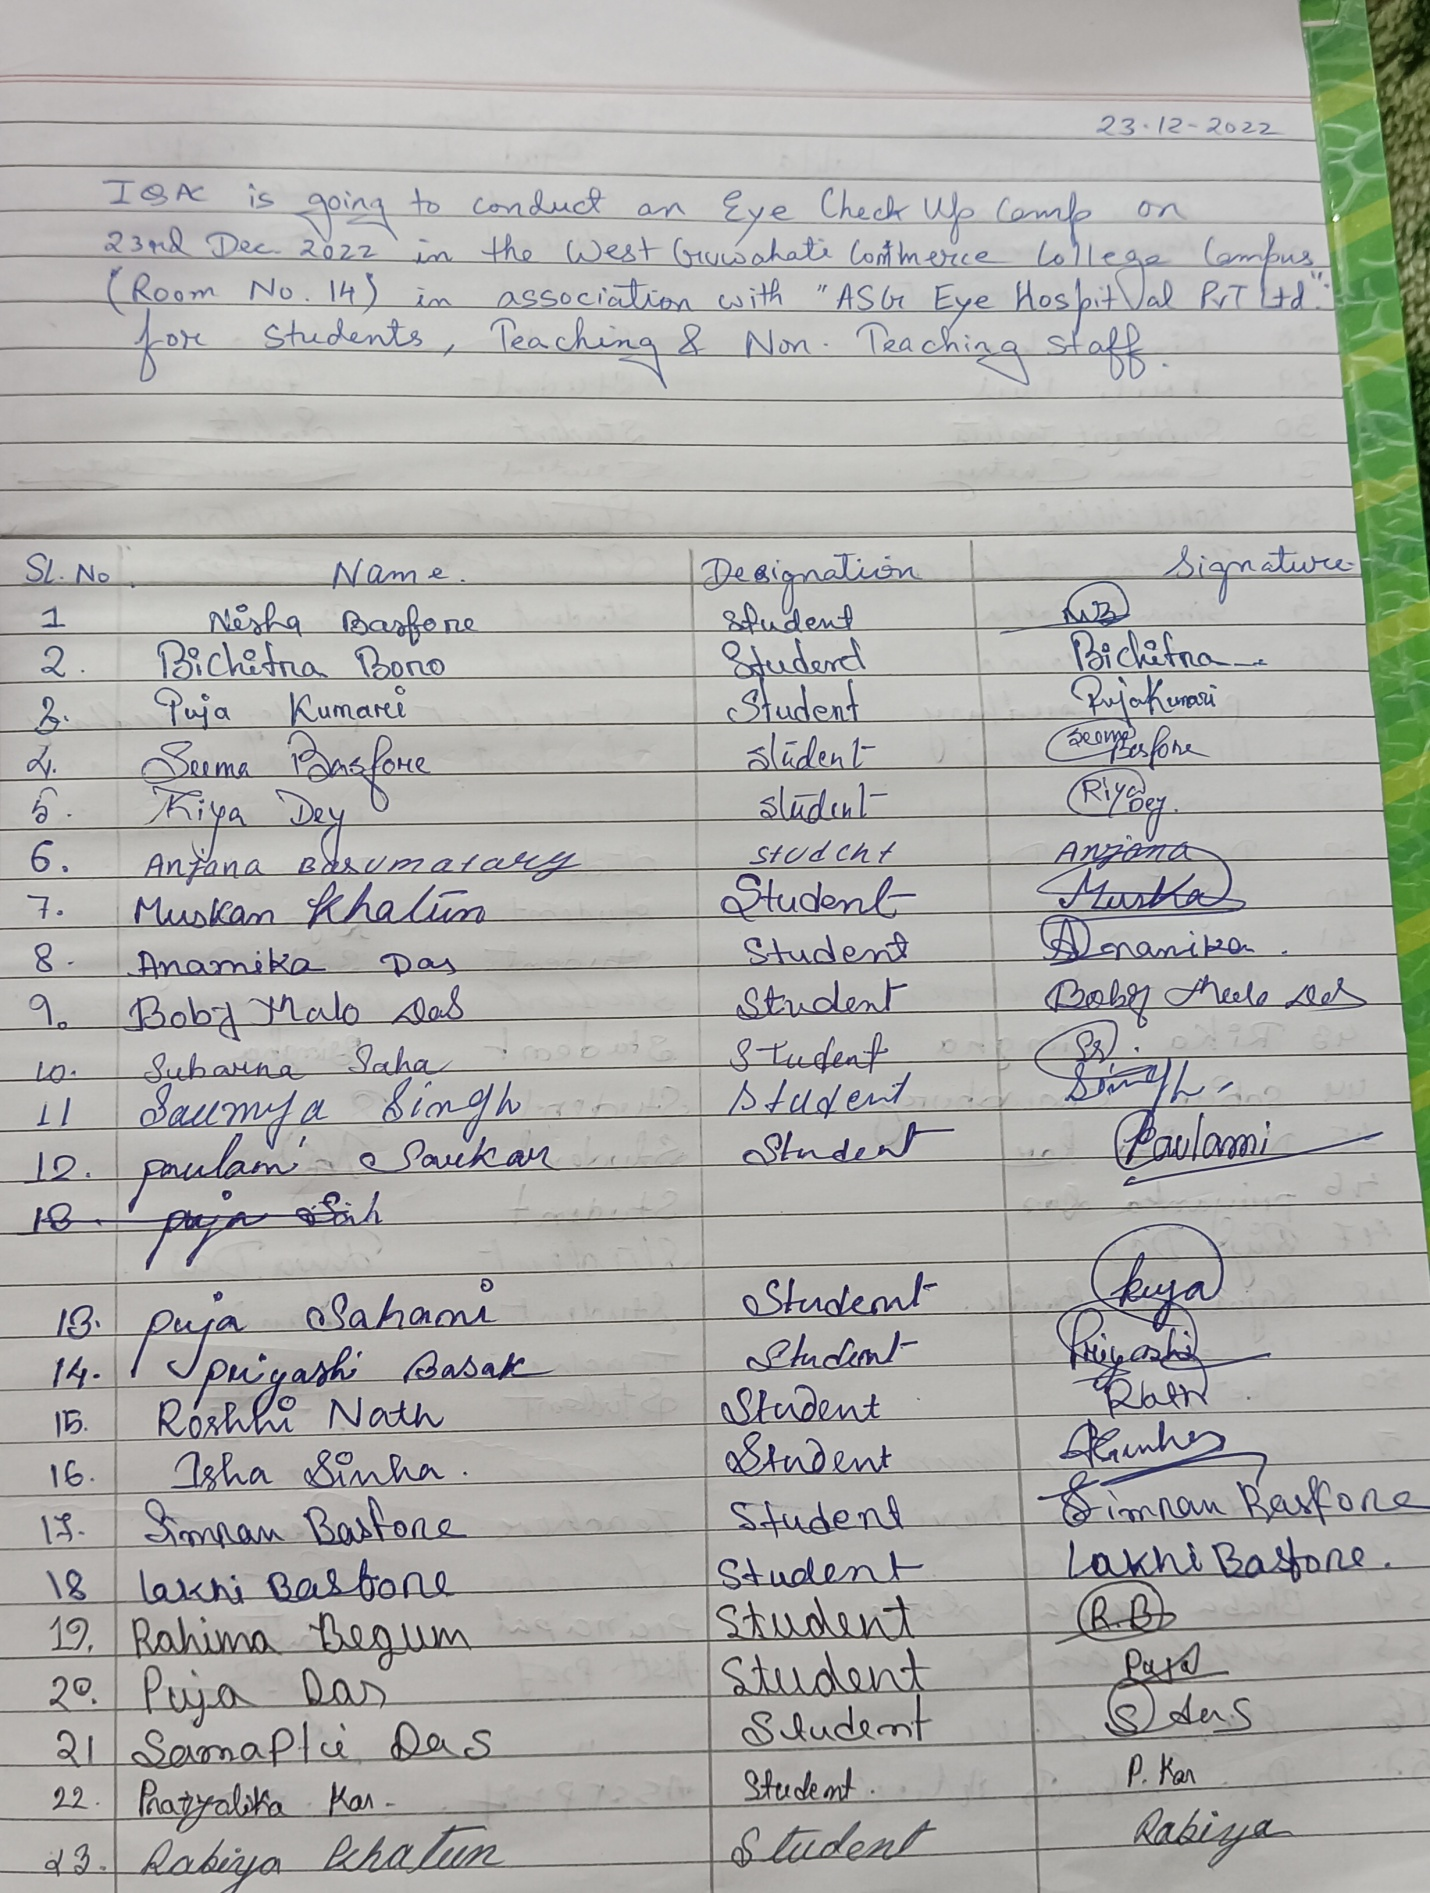 23-12-2022
IQAC is going to conduct an Eye Check Up Camp on
23rd Dec. 2022 in the West Guwahati Commerce College Campus
(Room No. 14) in association with "ASG Eye Hospital Pvt Ltd".
for Students, Teaching & Non-Teaching staff.
Sl. No. Name. Designation Signature
1 Nisha Basfore Student NB
2. Bichitra Boro Student Bichitra
3. Puja Kumari Student Puja Kumari
4. Seema Basfore Student Seema Basfore
5. Riya Dey Student Riya Dey.
6. Anjana Basumatary student Anjana
7. Muskan Khatun Student Muskan
8. Anamika Das Student Anamika.
9. Boby Malo Das Student Boby Malo Das
10. Subarna Saha Student
11 Saumya Singh Student Singh
12. Paulami Sarkar Student Paulami
13. puja Sah
13. puja Sahani Student
14. Priyashi Basak Student Priyashi
15. Roshni Nath Student
16. Isha Sinha. Student
17. Simran Basfore Student Simran Basfore
18 Lakhi Basfore Student Lakhi Basfore.
19. Rahima Begum Student R.B
20. Puja Das Student Puja
21 Samapti Das Student S das
22. Pratyalika Kar. Student. P. Kar
23. Rabiya Khatun Student Rabiya